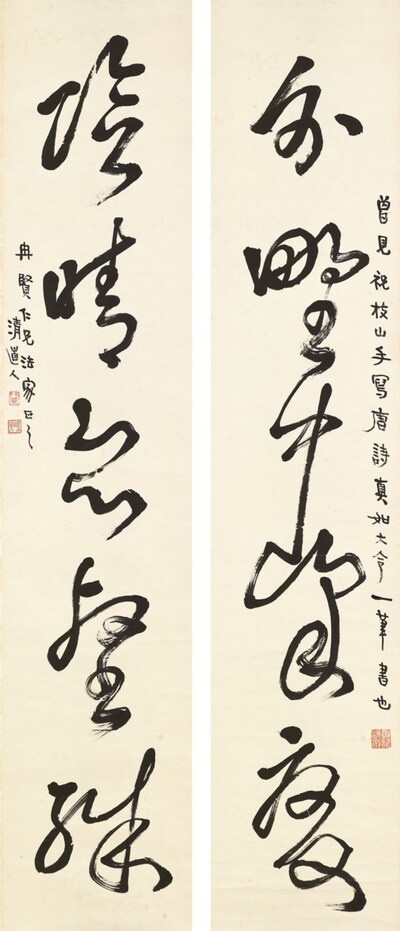 曾見祝枝山手寫唐詩真如大令一筆書也
分野中峯變
陰晴眾壑殊
冉賢仁兄法家正之
清道人